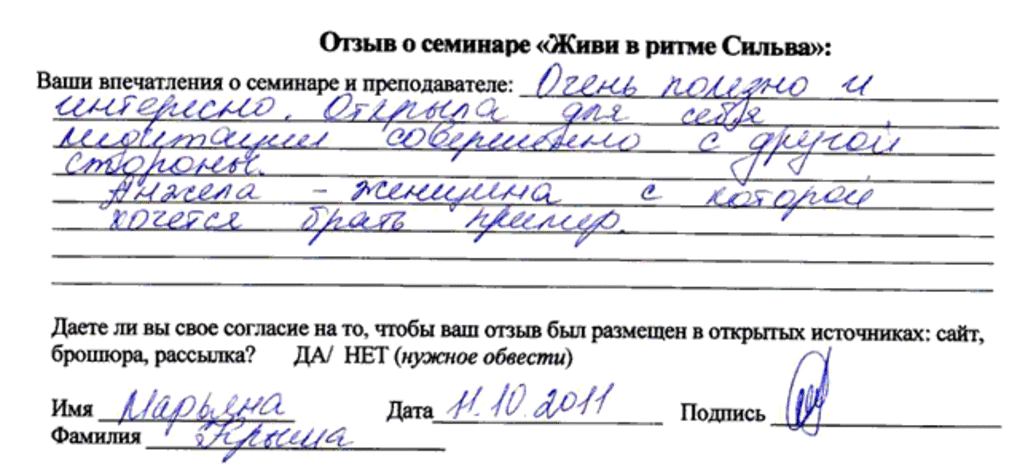 Отзыв о семинаре «Живи в ритме Сильва»:
Ваши впечатления о семинаре и преподавателе: Очень полезно и
интересно. Открыла для себя
медитации совершенно с другой
стороны.
Анжела - женщина с которой
хочется брать пример.
Даете ли вы свое согласие на то, чтобы ваш отзыв был размещен в открытых источниках: сайт,
брошюра, рассылка? ДА/ НЕТ (нужное обвести)
Имя Марьяна Дата 11.10.2011 Подпись
Фамилия